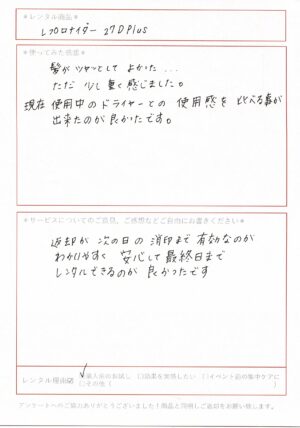 ＊レンタル商品＊
レプロナイザー 27D Plus
＊使ってみた感想＊
髪がツヤッとして よかった...
ただ 少し重く感じました。
現在 使用中のドライヤーとの 使用感を 比べる事が
出来たのが良かったです。
＊サービスについてのご意見、ご感想などご自由にお書きください＊
返却が 次の日の 消印まで 有効なのが
わかりやすく 安心して 最終日まで
レンタルできるのが 良かったです
レンタル理由 ✓購入前のお試し □効果を実感したい □イベント前の集中ケアに
□その他（ ）
アンケートへのご協力ありがとうございました！商品と同梱しご返却をお願い致します。